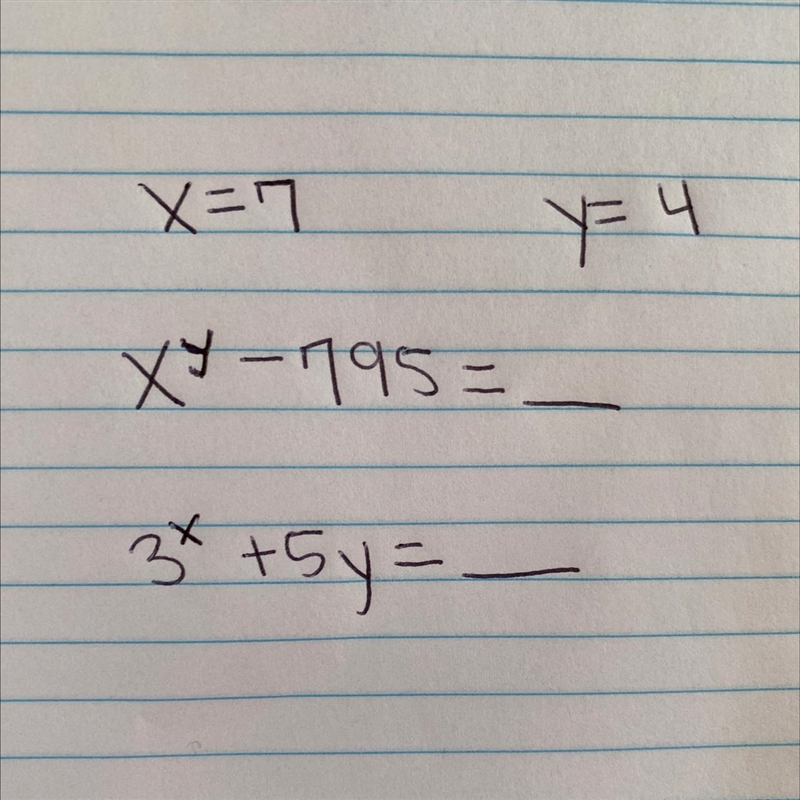 x=7 y=4
x^y - 795 = __
3^x + 5y = __